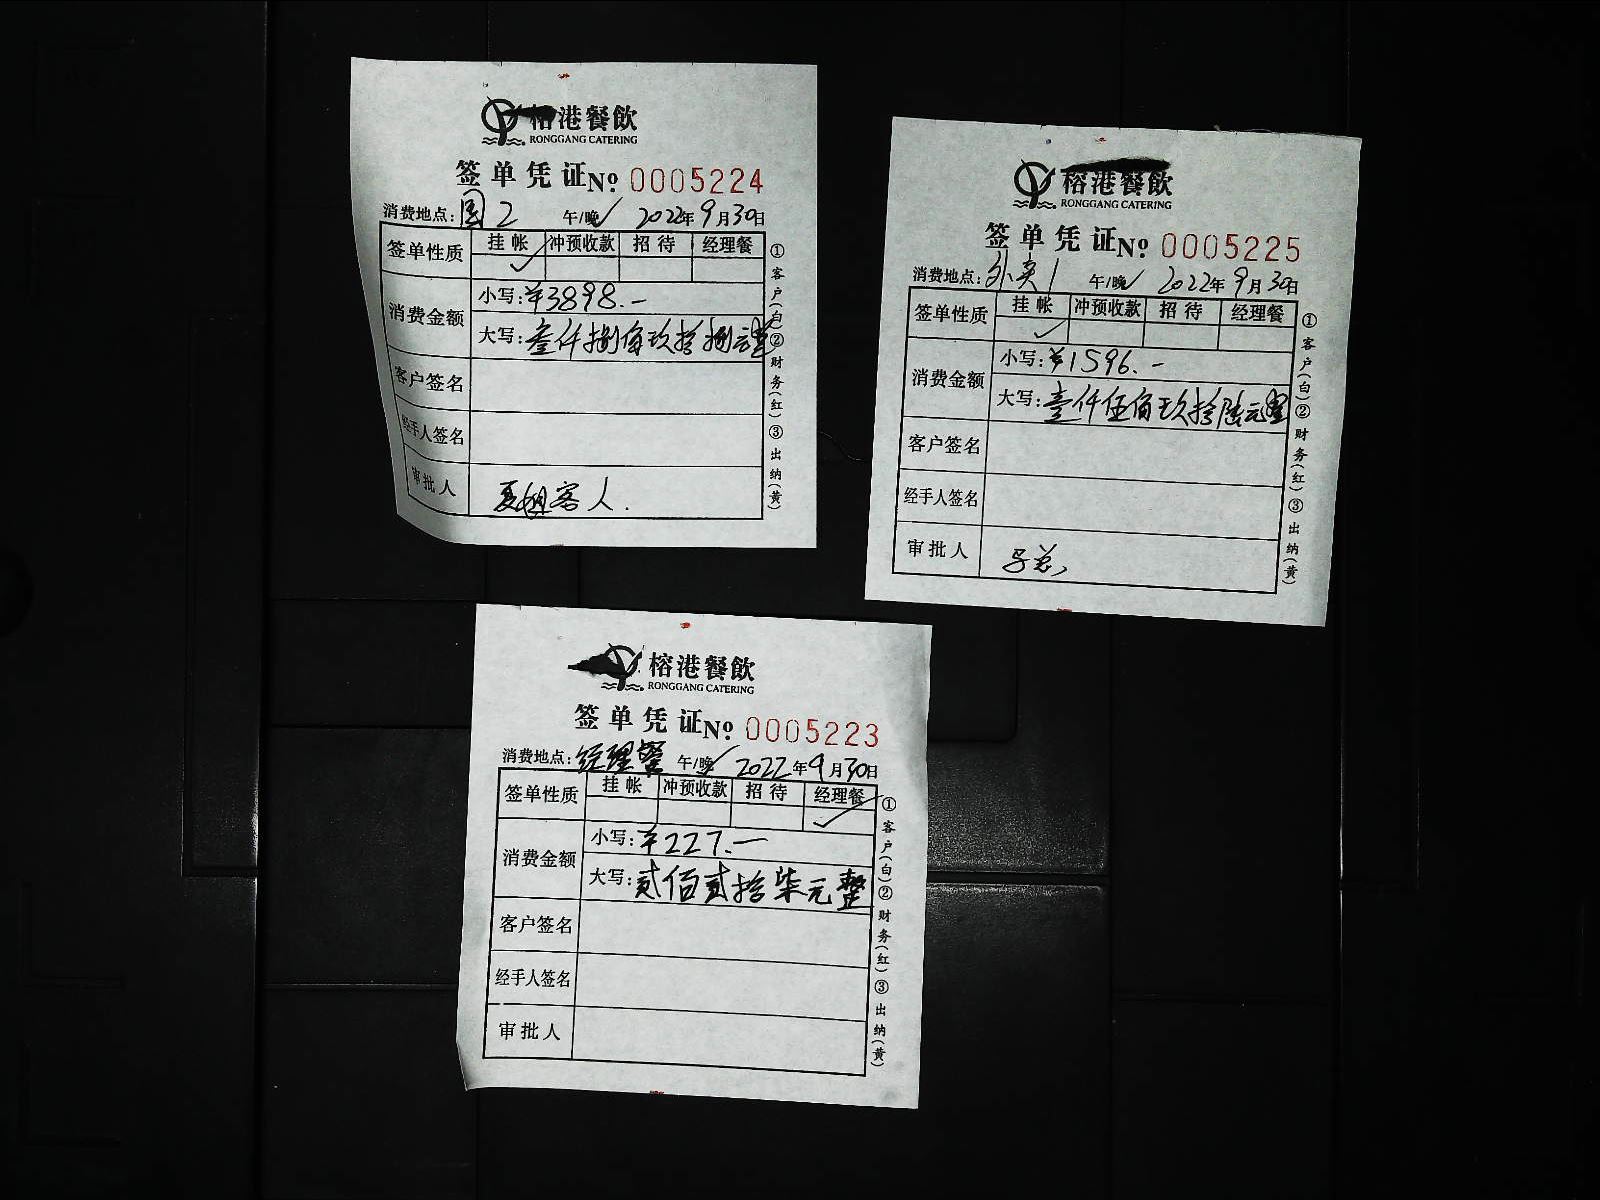 榕港餐飲
RONGGANG CATERING
签单凭证 №: 0005224
消费地点: 国2 午/晚✓ 2022年9月30日
签单性质 挂帐 冲预收款 招待 经理餐
✓
消费金额 小写:¥3898.-
大写:壹仟捌佰玖拾捌元整
客户签名
经手人签名
审批人 客人.
①客户(白)②财务(红)③出纳(黄)
榕港餐飲
RONGGANG CATERING
签单凭证 №: 0005225
消费地点: 外卖1 午/晚✓ 2022年9月30日
签单性质 挂帐 冲预收款 招待 经理餐
✓
消费金额 小写:¥1596.-
大写:壹仟伍佰玖拾陆元整
客户签名
经手人签名
审批人
①客户(白)②财务(红)③出纳(黄)
榕港餐飲
RONGGANG CATERING
签单凭证 №: 0005223
消费地点: 经理餐 午/晚✓ 2022年9月30日
签单性质 挂帐 冲预收款 招待 经理餐
✓
消费金额 小写:¥227.-
大写:贰佰贰拾柒元整
客户签名
经手人签名
审批人
①客户(白)②财务(红)③出纳(黄)